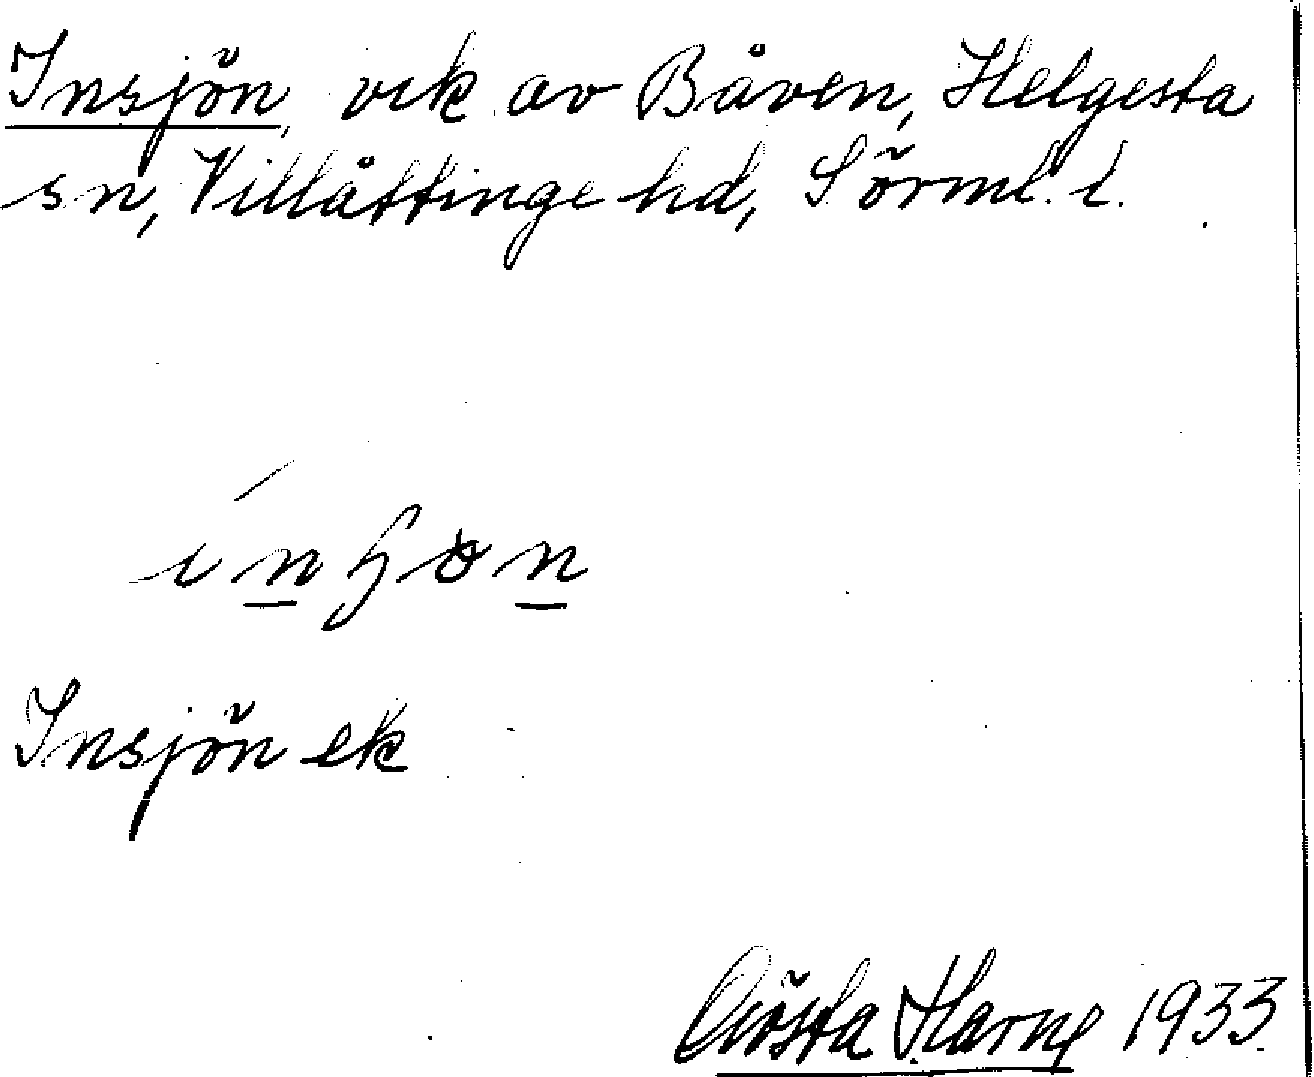 Insjön, vik av Båven, Helgesta
sn, Villåttinge hd, Sörml. l.
Insjön ek
Gösta Harne 1933